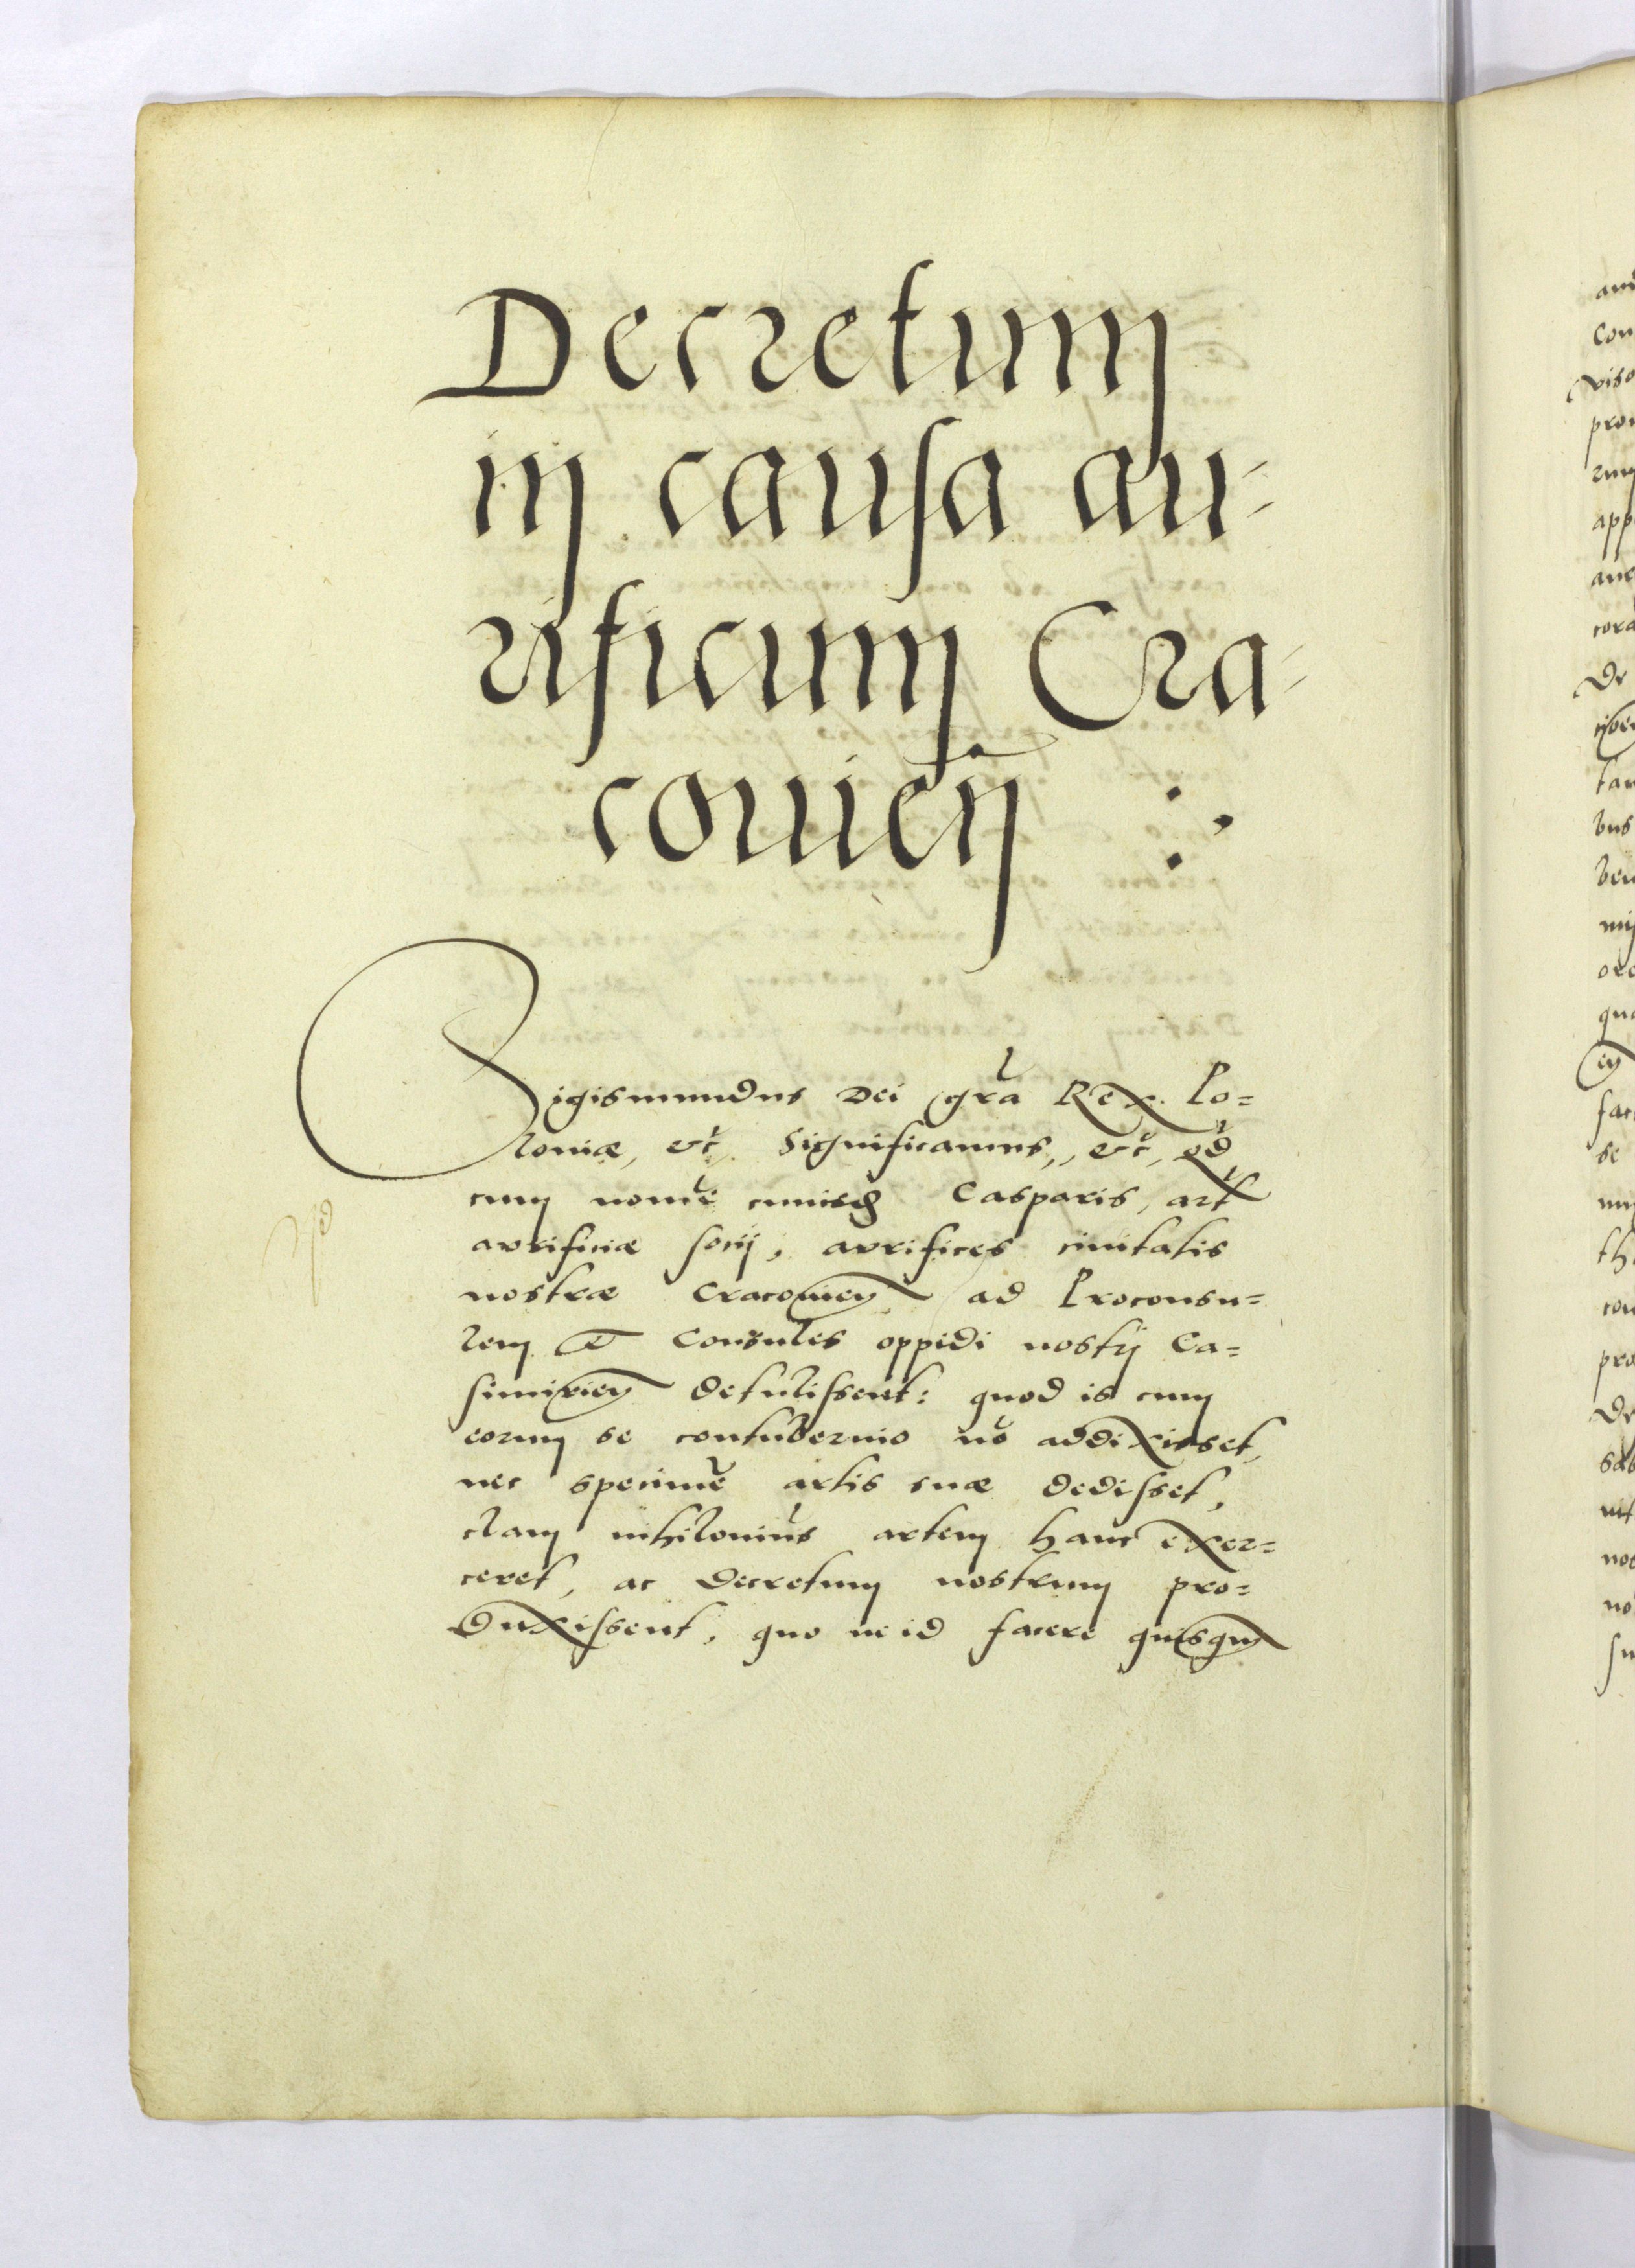 Decretum
in causa au-
rificum Cra-
coviẽn
Sigismundus Dei gra͂ Rex Po=
loniæ, etc̃, Significamus, etc̃, qd̃
cum nomĩe cuiusd̃ Casparis, art̃
aurificiæ socij, aurifices civitatis
nostræ Cracovieñ ad Proconsu=
lem et Consules oppidi nostri Ca=
simirieñ detulissent: quod is cum
eorum se contubernio nõ addixisset,
nec specimẽ artis suæ dedisset,
clam nihilominũs artem hanc exer=
ceret, ac decretum nostrum pro=
duxissent, quo ne id facere quisqm̃
and
con
viso
pro
rum
app
cora
De
tan
bus
ben
qua
en
fac
se
th
con
pro
De
nos
no
su